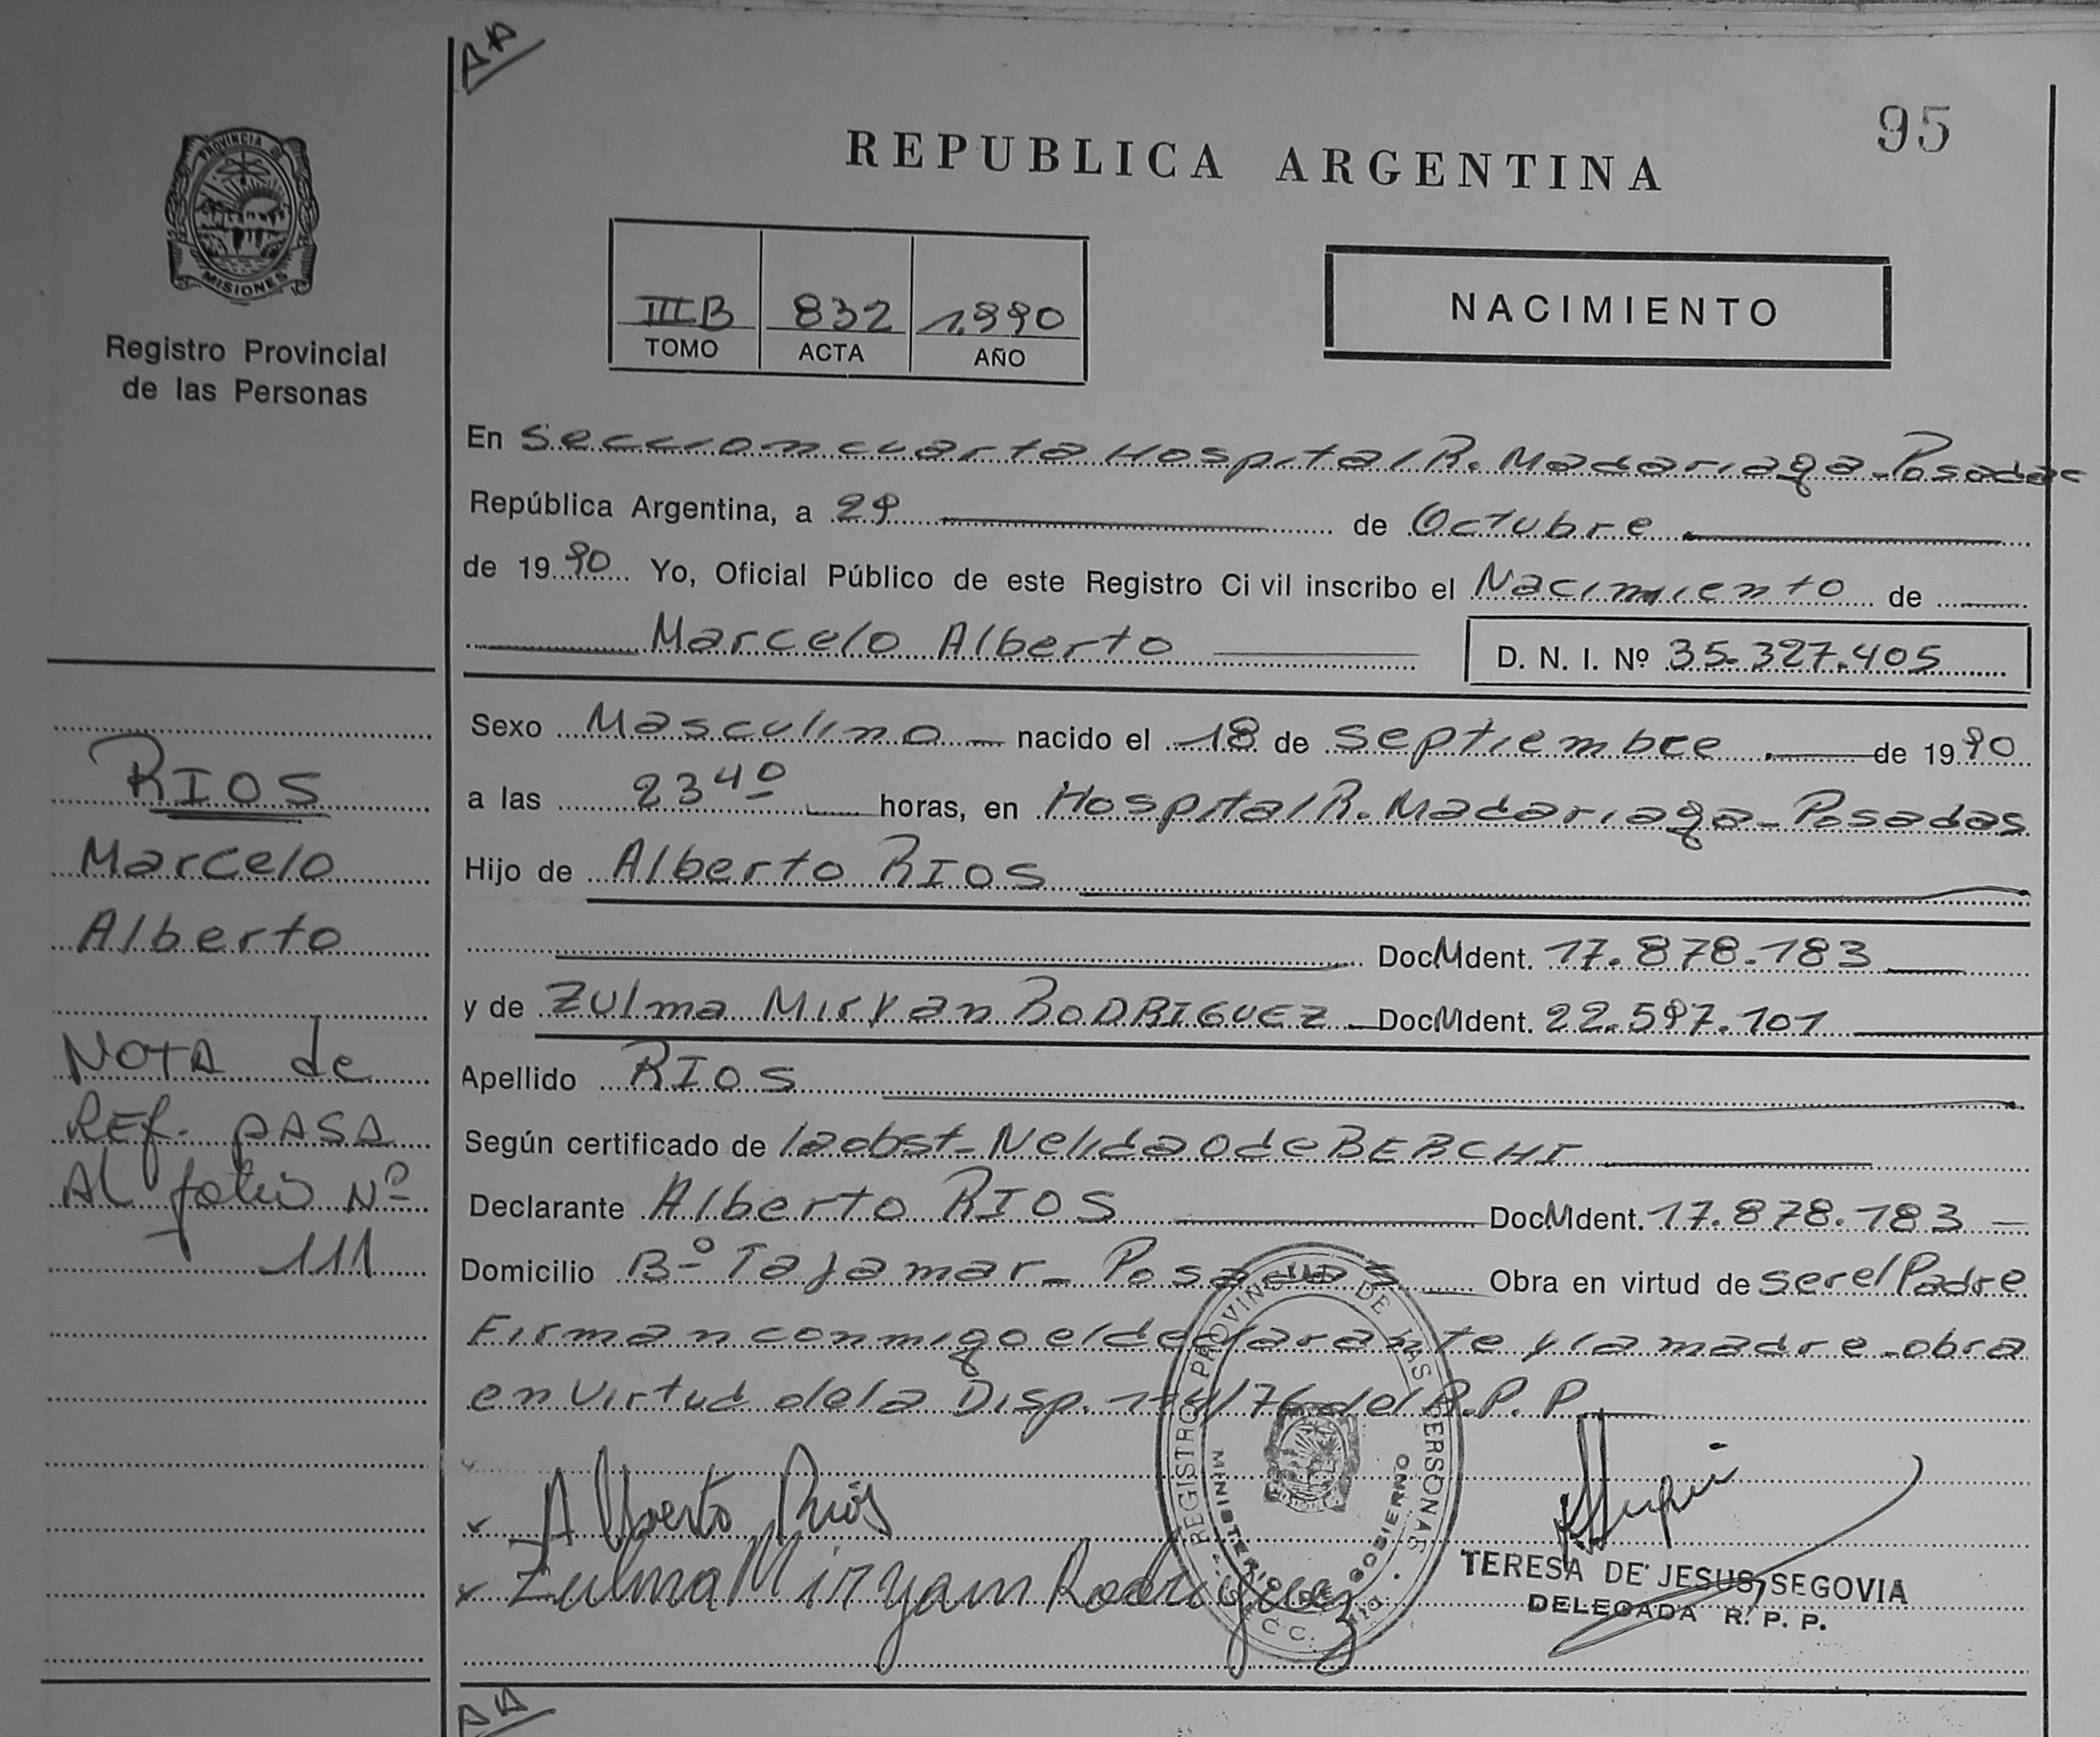 AA
95
REPUBLICA ARGENTINA
PROVINCIA DE
MISIONES
Registro Provincial
de las Personas
III B 832 1.990
TOMO ACTA AÑO
NACIMIENTO
En Seccion cuarta Hospital R. Madariaga - Posadas
República Argentina, a 29 de Octubre
de 1990 Yo, Oficial Público de este Registro Ci vil inscribo el Nacimiento de
Marcelo Alberto D. N. I. Nº 35.327.405
Sexo Masculino nacido el 18 de septiembre de 1990
a las 23 40 horas, en Hospital R. Madariaga - Posadas
Hijo de Alberto RIOS
Doc. M Ident. 17.878.183
y de Zulma Miryan RODRIGUEZ Doc. M Ident. 22.597.101
Apellido RIOS
Según certificado de la obst - Nelida O de BERCHI
Declarante Alberto RIOS Doc. M Ident. 17.878.183
Domicilio Bº Tajamar - Posadas Obra en virtud de ser el Padre
Firman conmigo el declarante y la madre - obra
en virtud de la Disp. 114/76 del R.P.P.
RIOS
Marcelo
Alberto
NOTA de
REf. PASA
Al folio Nº
111
Alberto Rios
Zulma Miryam Rodriguez
REGISTRO PROVINCIAL DE LAS PERSONAS
MINISTERIO DE GOBIERNO
TERESA DE JESUS SEGOVIA
DELEGADA R. P. P.
AA